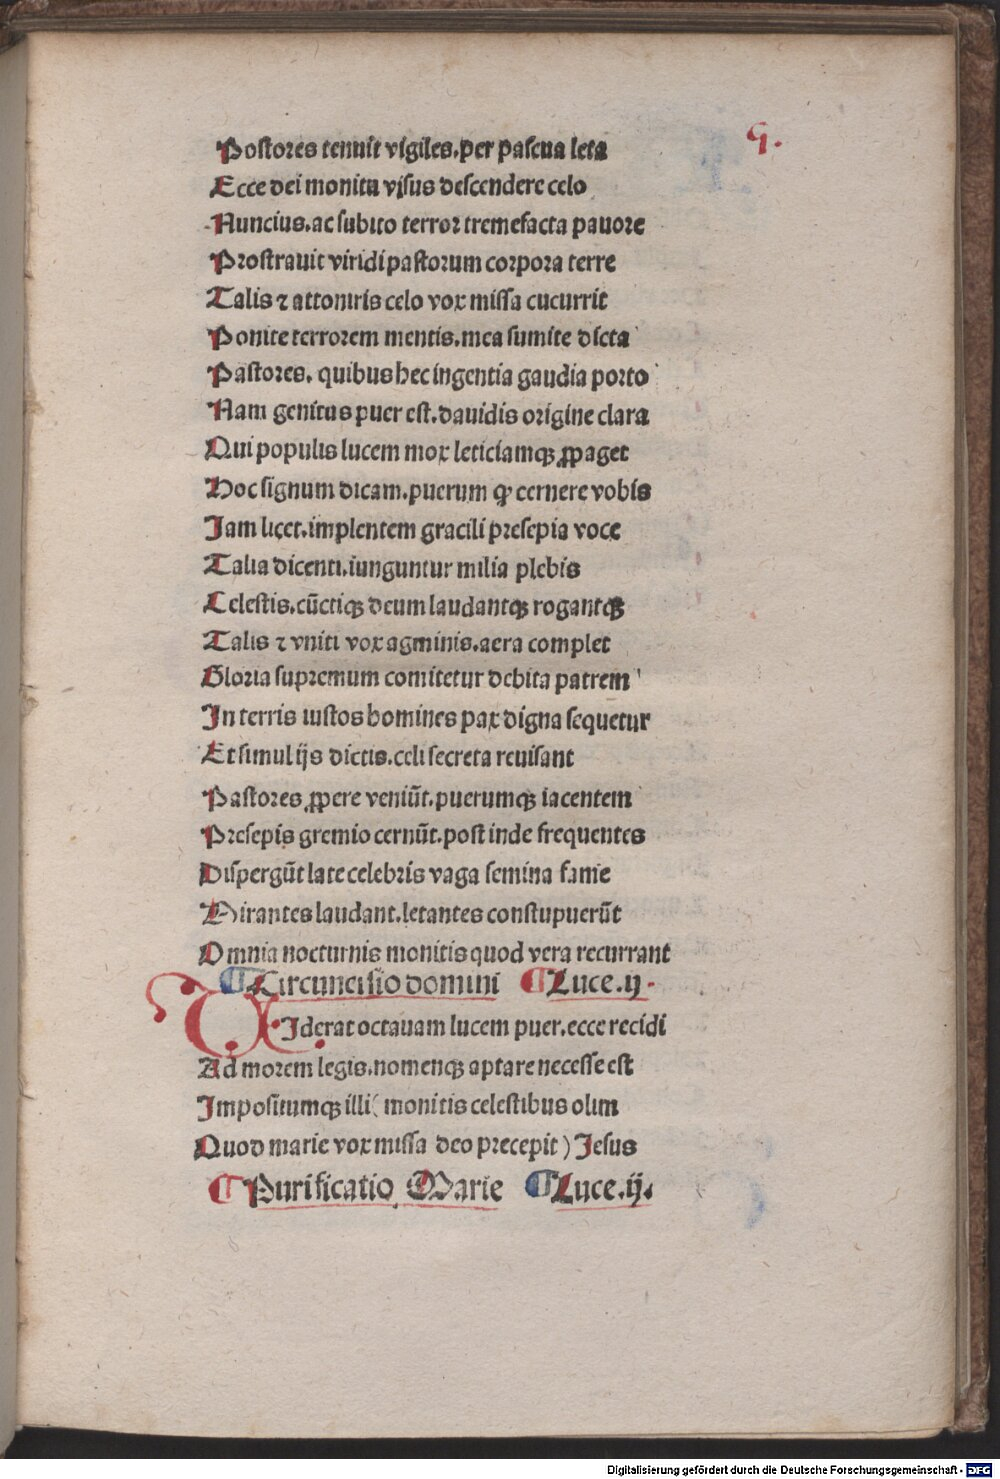 9.
Postores tenuit vigiles.per pascua leta
Ecce dei monitu visus descendere celo
Nuncius.ac subito terror tremefacta pauore
Prostrauit viridi pastorum corpora terre
Talis ⁊ attonitis celo vox missa cucurrit
Ponite terrorem mentis.mea sumite dicta
Pastores. quibus hec ingentia gaudia porto
Nam genitus puer est.dauidis origine clara
Qui populis lucem mox leticiamqꝫ ꝓpaget
Hoc signum dicam.puerum ꝙ cernere vobis
Jam licet.implentem gracili presepia voce
Talia dicenti.iunguntur milia plebis
Celestis.cūctiqꝫ deum laudantqꝫ rogantqꝫ
Talis ⁊ vniti vox agminis.aera complet
Gloria supremum comitetur debita patrem
In terris iustos homines pax digna sequetur
Et simul ijs dictis.celi secreta reuisant
Pastores ꝓpere veniūt.puerumqꝫ iacentem
Presepis gremio cernūt.post inde frequentes
Dispergūt late celebris vaga semina fame
Mirantes laudant.letantes constupuerūt
Omnia nocturnis monitis quod vera recurrant
¶ Circuncisio domini ¶ Luce.ij.
Viderat octauam lucem puer.ecce recidi
Ad morem legis.nomenqꝫ aptare necesse est
Impositumqꝫ illi( monitis celestibus olim
Quod marie vox missa deo precepit) Jesus
¶ Purificatio Marie ¶ Luce.ij.
Digitalisierung gefördert durch die Deutsche Forschungsgemeinschaft - DFG